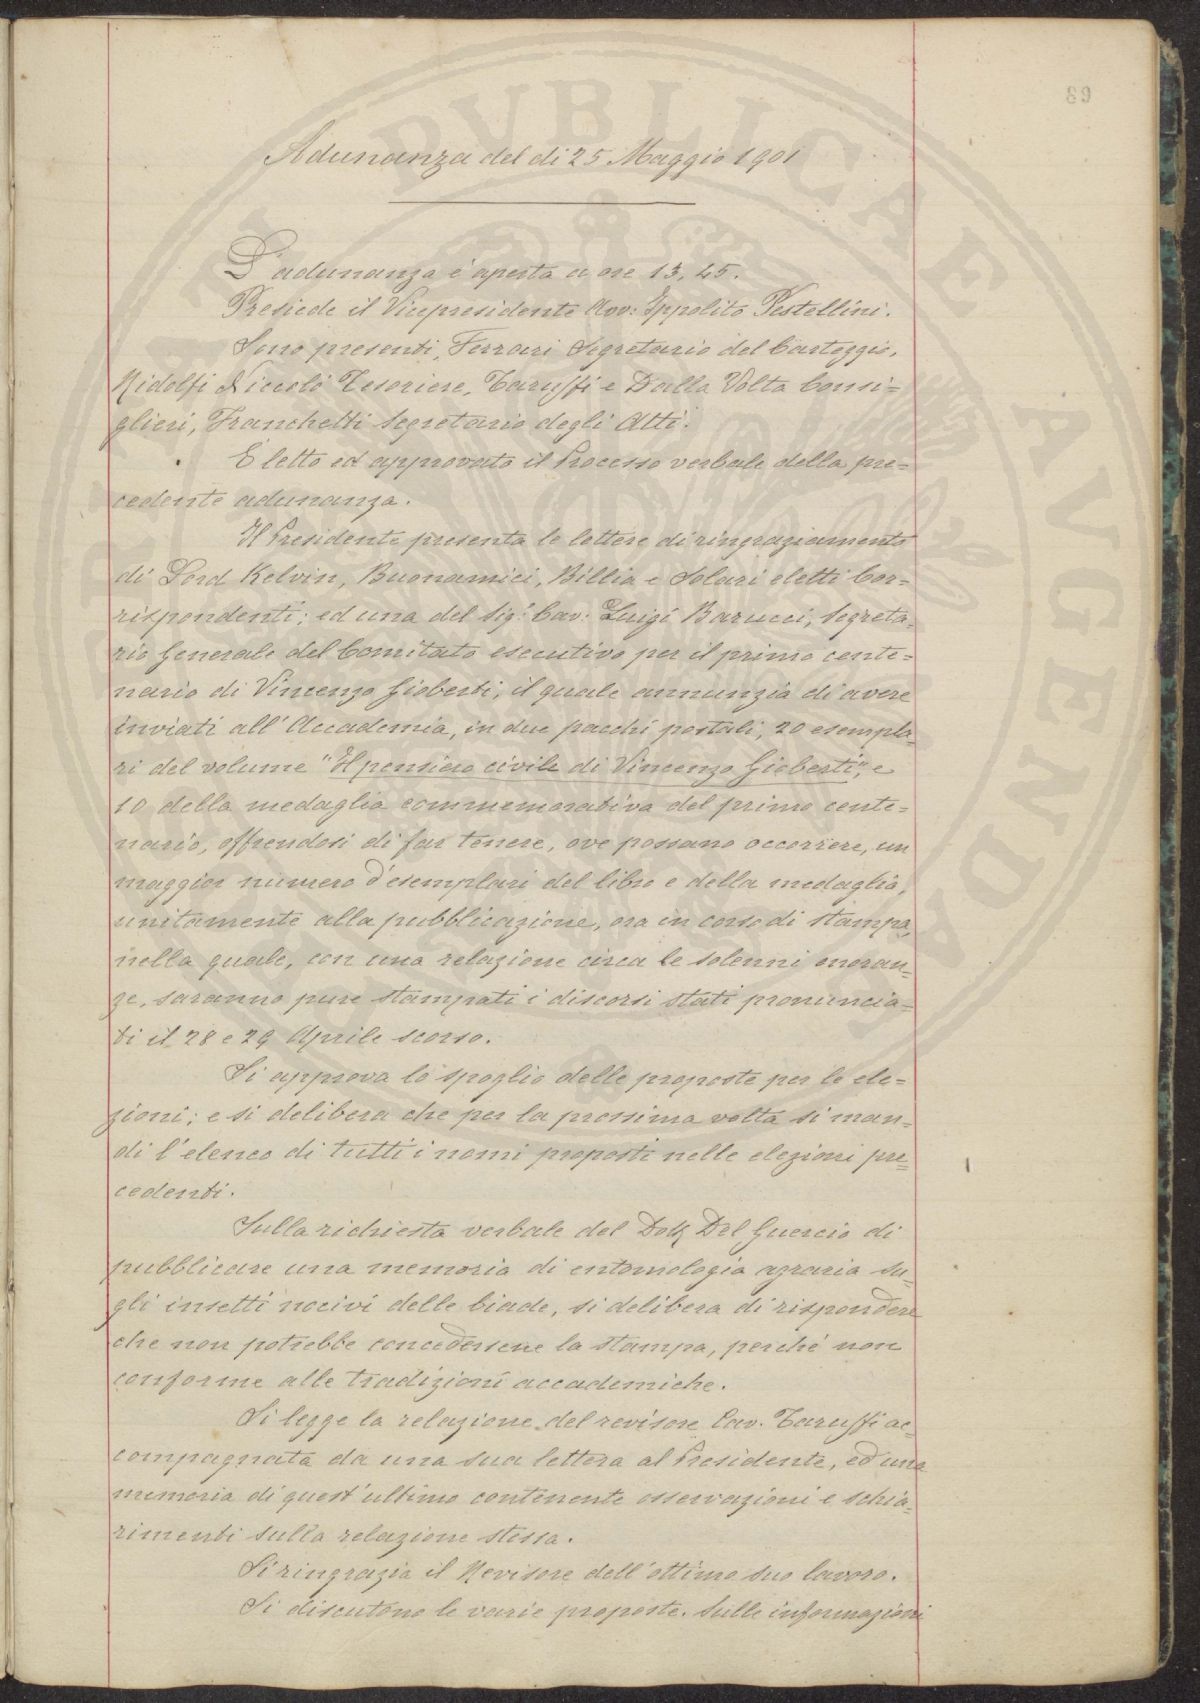 Adunanza del di 25 Maggio 1901
L'adunanza è aperta a ore 13,45.
Presiede il Vicepresidente Avv: Ippolito Pestellini.
Sono presenti, Ferrari Segretario del Carteggio,
Ridolfi Niccolò Tesoriere, Taruffi e Dalla Volta Consi=
glieri, Franchetti Segretario degli Atti.
È letto ed approvato il Processo verbale della pre=
cedente adunanza.
Il Presidente presenta le lettere di ringraziamento
di Lord Kelvin, Buonamici, Billia e Solari eletti Cor=
rispondenti; ed una del Sig.r Cav: Luigi Barucci, Segreta=
rio Generale del Comitato esecutivo per il primo cente=
nario di Vincenzo Gioberti, il quale annunzia di avere
inviati all'Accademia, in due pacchi postali, 20 esempla=
ri del volume "Il pensiero civile di Vincenzo Gioberti", e
10 della medaglia commemorativa del primo cente=
nario, offrendosi di far tenere, ove possano occorrere, un
maggior numero d'esemplari del libro e della medaglia,
unitamente alla pubblicazione, ora in corso di stampa,
nella quale, con una relazione circa le solenni onoran=
ze, saranno pure stampati i discorsi stati pronuncia=
ti il 28 e 29 Aprile scorso.
Si approva lo spoglio delle proposte per le ele=
zioni; e si delibera che per la prossima volta si man=
di l'elenco di tutti i nomi proposti nelle elezioni pre=
cedenti.
Sulla richiesta verbale del Dott. Del Guercio di
pubblicare una memoria di entomologia agraria su=
gli insetti nocivi delle biade, si delibera di rispondere
che non potrebbe concedersene la stampa, perché non
conforme alle tradizioni accademiche.
Si legge la relazione del revisore Cav. Taruffi ac=
compagnata da una sua lettera al Presidente, ed una
memoria di quest'ultimo contenente osservazioni e schia=
rimenti sulla relazione stessa.
Si ringrazia il Revisore dell'ottimo suo lavoro.
Si discutono le varie proposte. Sulle informazioni